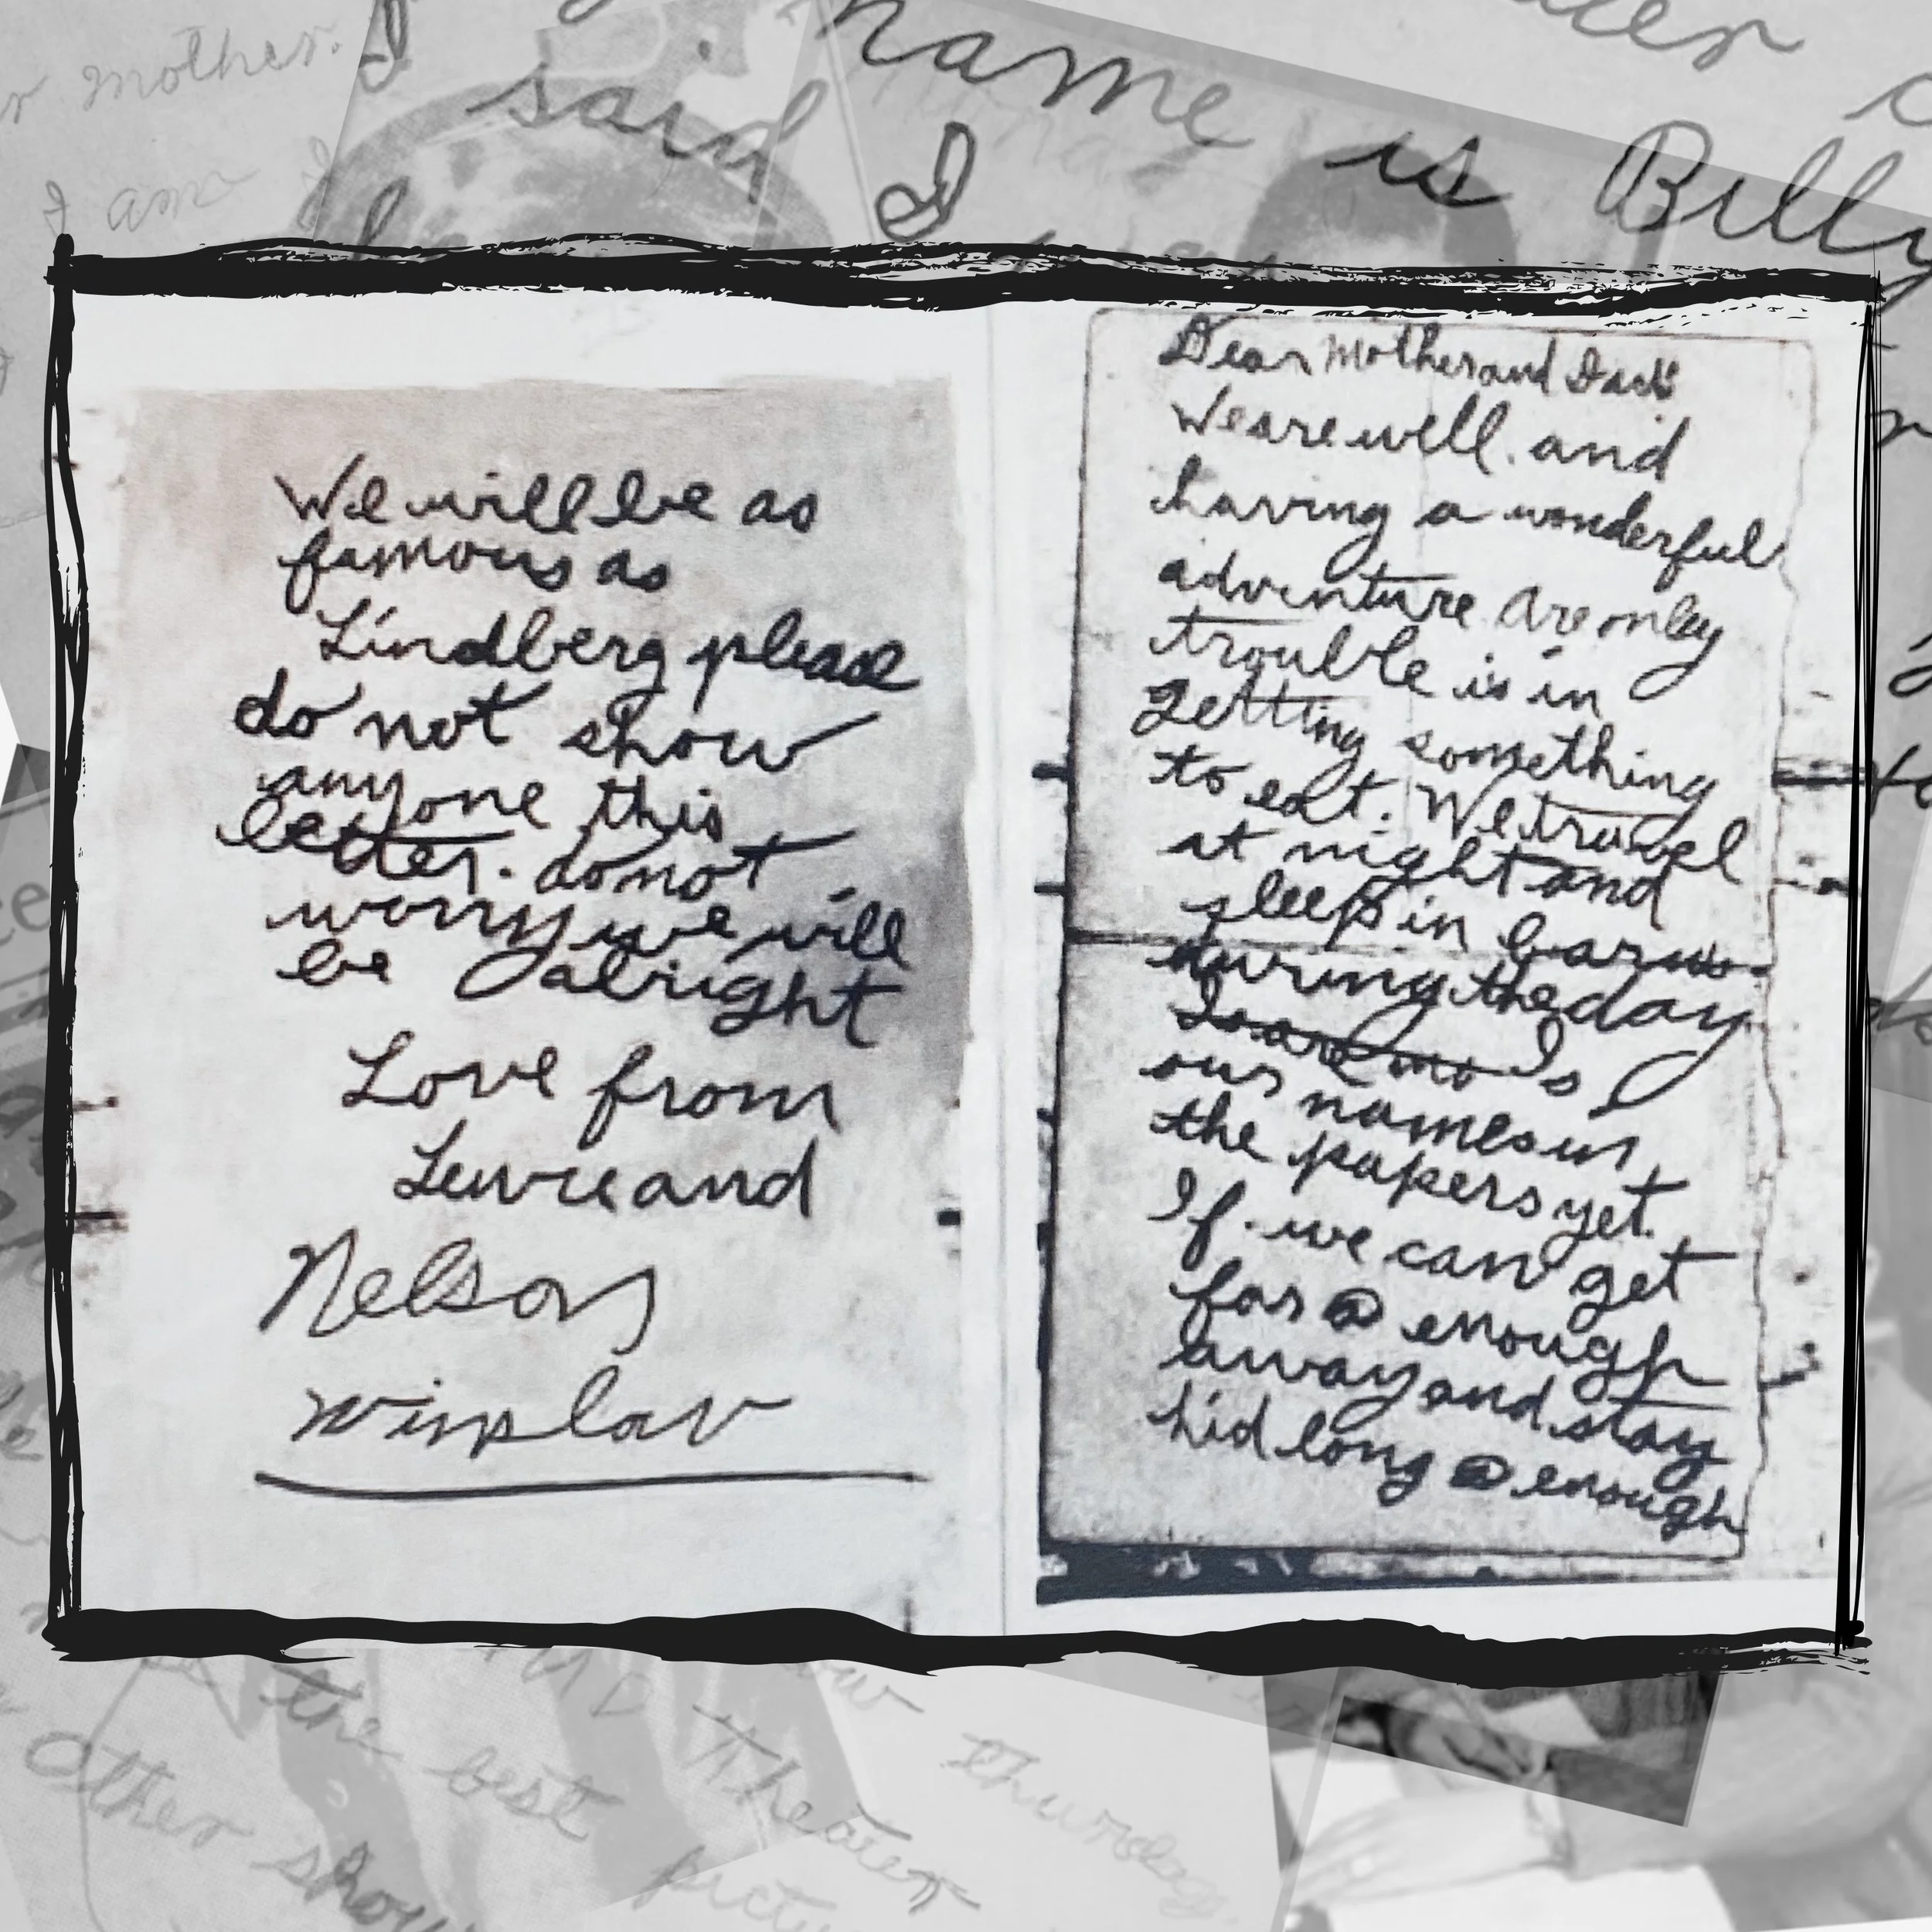 r mother.
I
said
name is Billy
I am
I
Dear Mother and Dad
We are well. and
having a wonderful
adventure are only
trouble is in
getting something
to eat. We travel
at night and
sleep in barns
during the day
Is
our names in
the papers yet.
If we can get
far enough
away and stay
hid long enough
We will be as
famous as
Lindberg please
do not show
anyone this
letter. do not
worry we will
be alright
Love from
Lewie and
Nelson
winslow
the best
Theater
thursday
other show